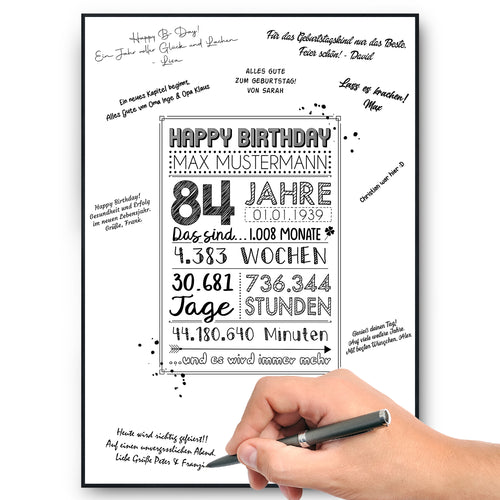 Happy B-Day!
Ein Jahr voller Glück und Lachen
- Lisa
Für das Geburtstagskind nur das Beste.
Feier schön! - David
ALLES GUTE
ZUM GEBURTSTAG!
VON SARAH
Ein neues Kapitel beginnt,
Alles Gute von Oma Inge & Opa Klaus
Lass es krachen!
Max
HAPPY BIRTHDAY
MAX MUSTERMANN
84 JAHRE
01.01.1939
Das sind... 1.008 MONATE
4.383 WOCHEN
30.681 Tage
736.344 STUNDEN
44.180.640 Minuten
...und es wird immer mehr
Christian war hier :D
Happy Birthday!
Gesundheit und Erfolg
im neuen Lebensjahr.
Grüße, Frank.
Genieß deinen Tag!
Auf viele weitere Jahre.
Mit besten Wünschen, Alex
Heute wird richtig gefeiert!!
Auf einen unvergesslichen Abend.
Liebe Grüße Peter & Franzi